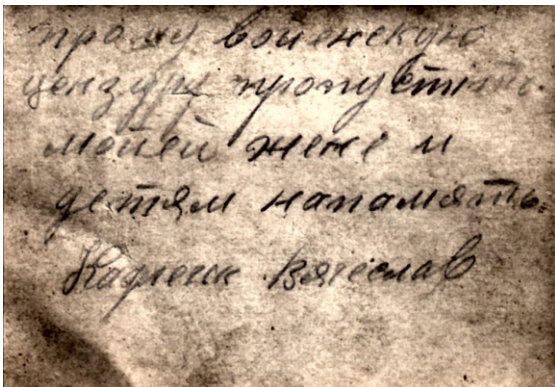 прошу воиенскую
цензуру пропустить
моией жене и
детям напомять.
Вячеслав